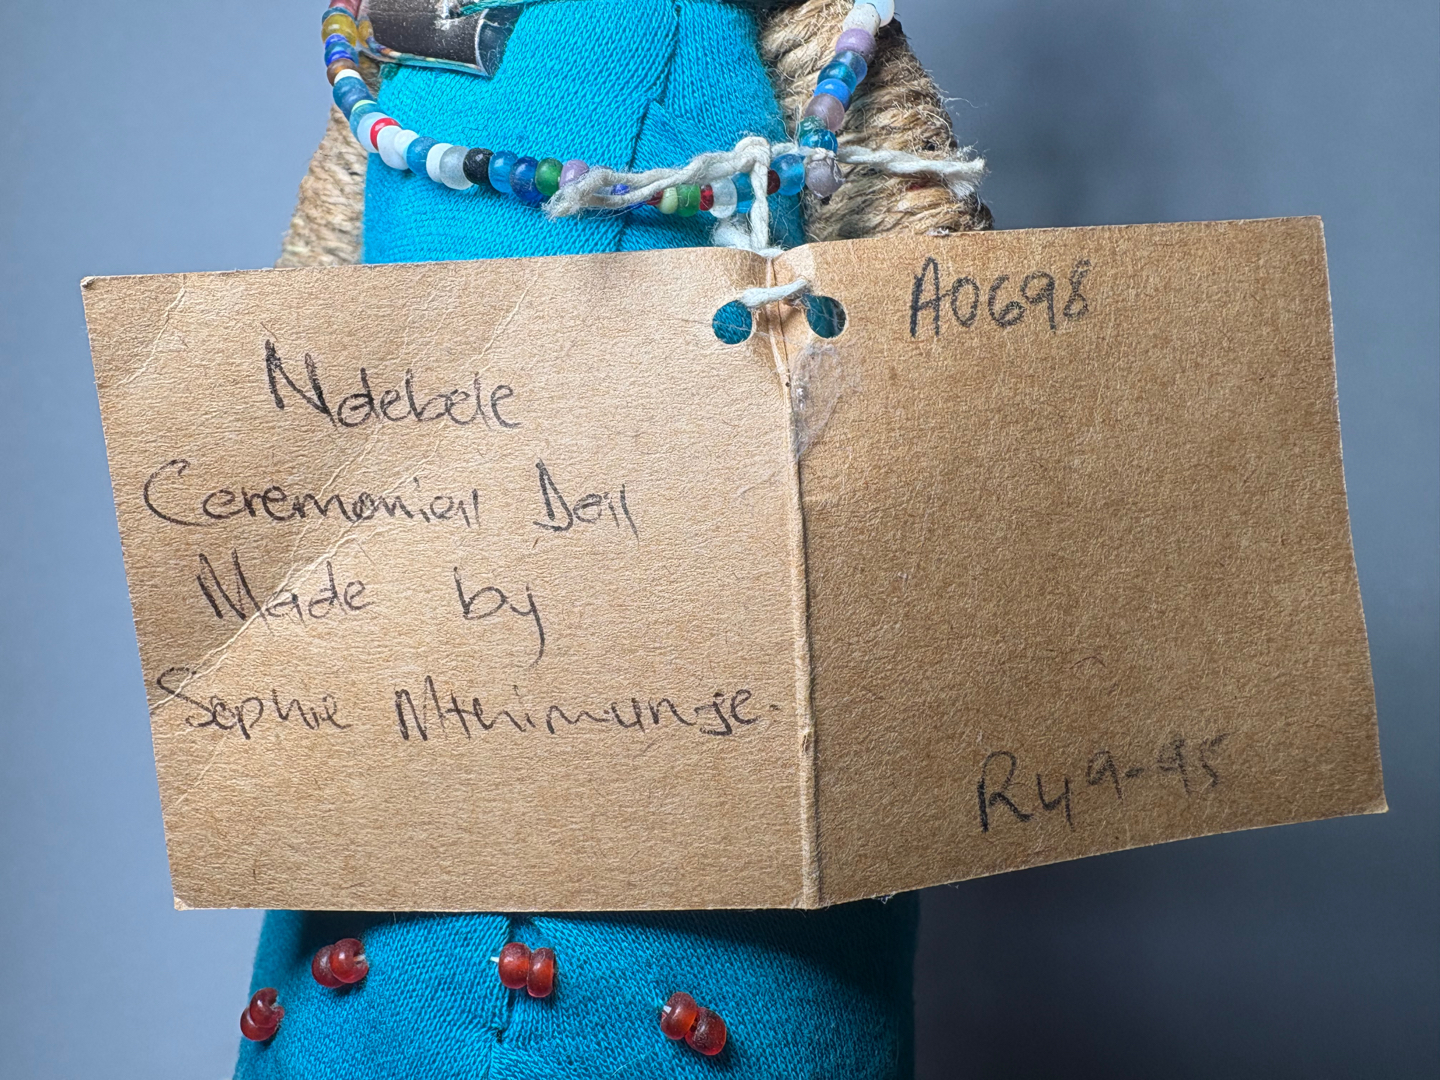 Ndebele
Ceremonial Doll
Made by
Sophie Mthimunje.
A0698
R49-95